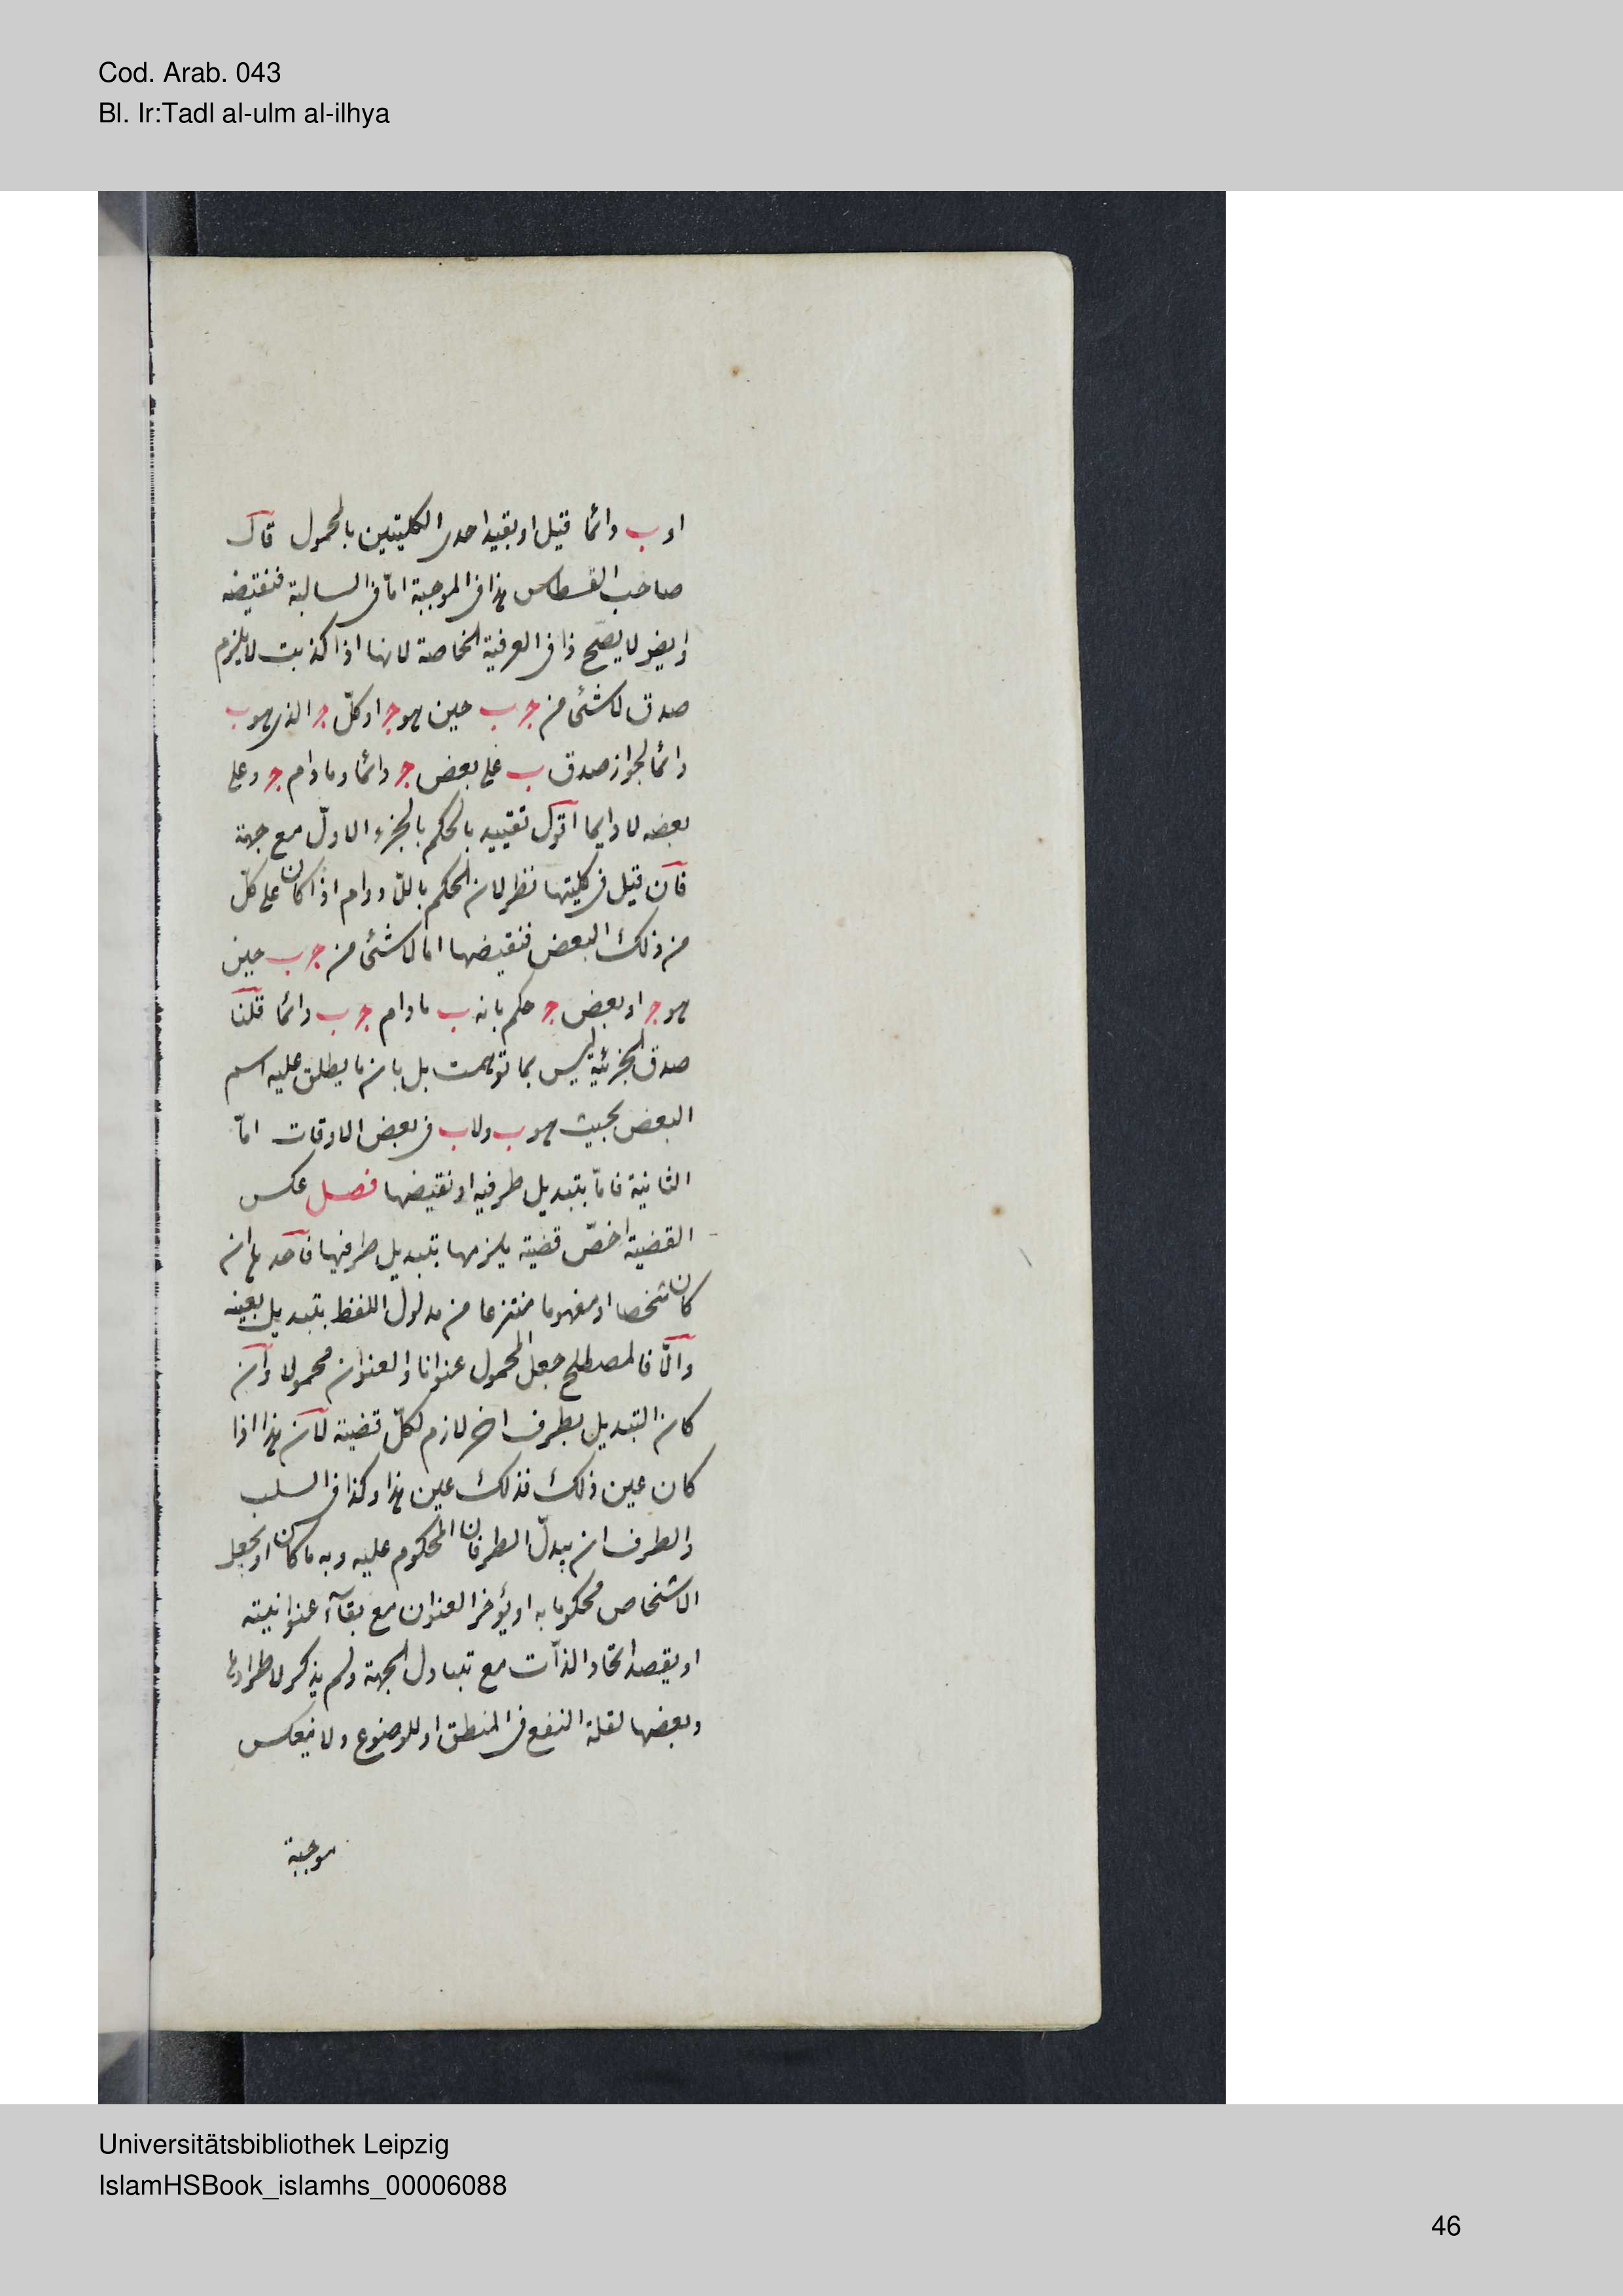 Cod. Arab. 043
Bl. Ir:Tadl al-ulm al-ilhya
او ب دائما قيل او بقيد احدى الكليتين بالمحمول قال
صاحب القسطاس هذا في الموجبة امّا في السالبة فنقيضه
وايض لا يصّح ذا في العرفية الخاصة لانها اذا كذبت لا يلزم
صدق لا شئ من ج ب حين هو ج او كلّ ج الذي هو ب
دائما لجواز صدق ب على بعض ج دائما وما دام ج وعلى
بعضه لا دايما اقول تقييد بالحكم بالجزء الاول مع جهة
فان قيل في كليتها نظر لان الحكم باللا دوام اذا كان على كلّ
من ذلك البعض فنقيضها اما لا شئ من ج ب حين
هو ج او بعض ج حكم بانه ب ما دام ج ب دائما قلنا
صدق الجزئية ليس بما توهمت بل بان ما يطلق عليه اسم
البعض بحيث هو ب ولا ب في بعض الاوقات امّا
الثانية فامّا بتبديل طرفيه او نقيضها فصل عكس
القضية اخصّ قضية يلزمها بتبديل طرفيها فاحد ان
كان شخصا او مفهوما منتزعا من مدلول اللفظ بتبديل بعينه
والّا فالمصطلح جعل المحمول عنوانا والعنوان محمولا وان
كان التبديل بطرف اخر لازم لكلّ قضية لان هذا اذا
كان عين ذلك فذلك عين هذا وكذا في السلب
والطرف ان يبدلّ الطرفان المحكوم عليه وبه ما كان او يجعل
الاشخاص محكوما به او يؤخر العنوان مع بقآء عنوانيته
او يقصد اتحاد الذّات مع تبادل الجهة ولم يذكر لاطرادها
وبعضها لقلة النفع في المنطق او للوضوع ولا ينعكس
موجبة
Universitätsbibliothek Leipzig
IslamHSBook_islamhs_00006088
46